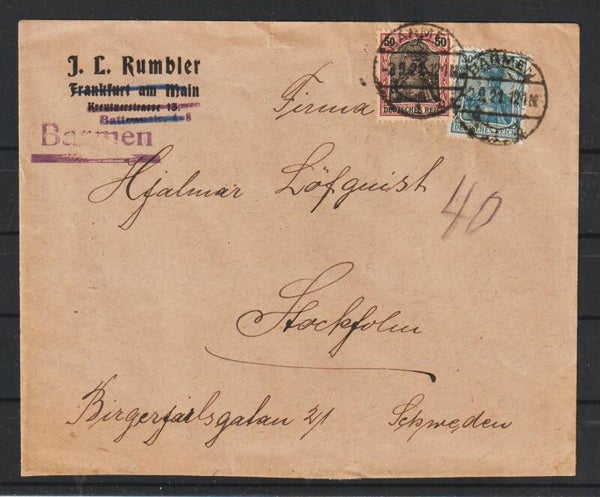 J. L. Rumbler
Frankfurt am Main
Kreutzerstrasse 13.
Barmen
50 50
DEUTSCHES REICH
30
DEUTSCHES REICH
BARMEN
Firma
Hjalmar Löfquist
40
Stockholm
Birgerjarlsgatan 21 Schweden